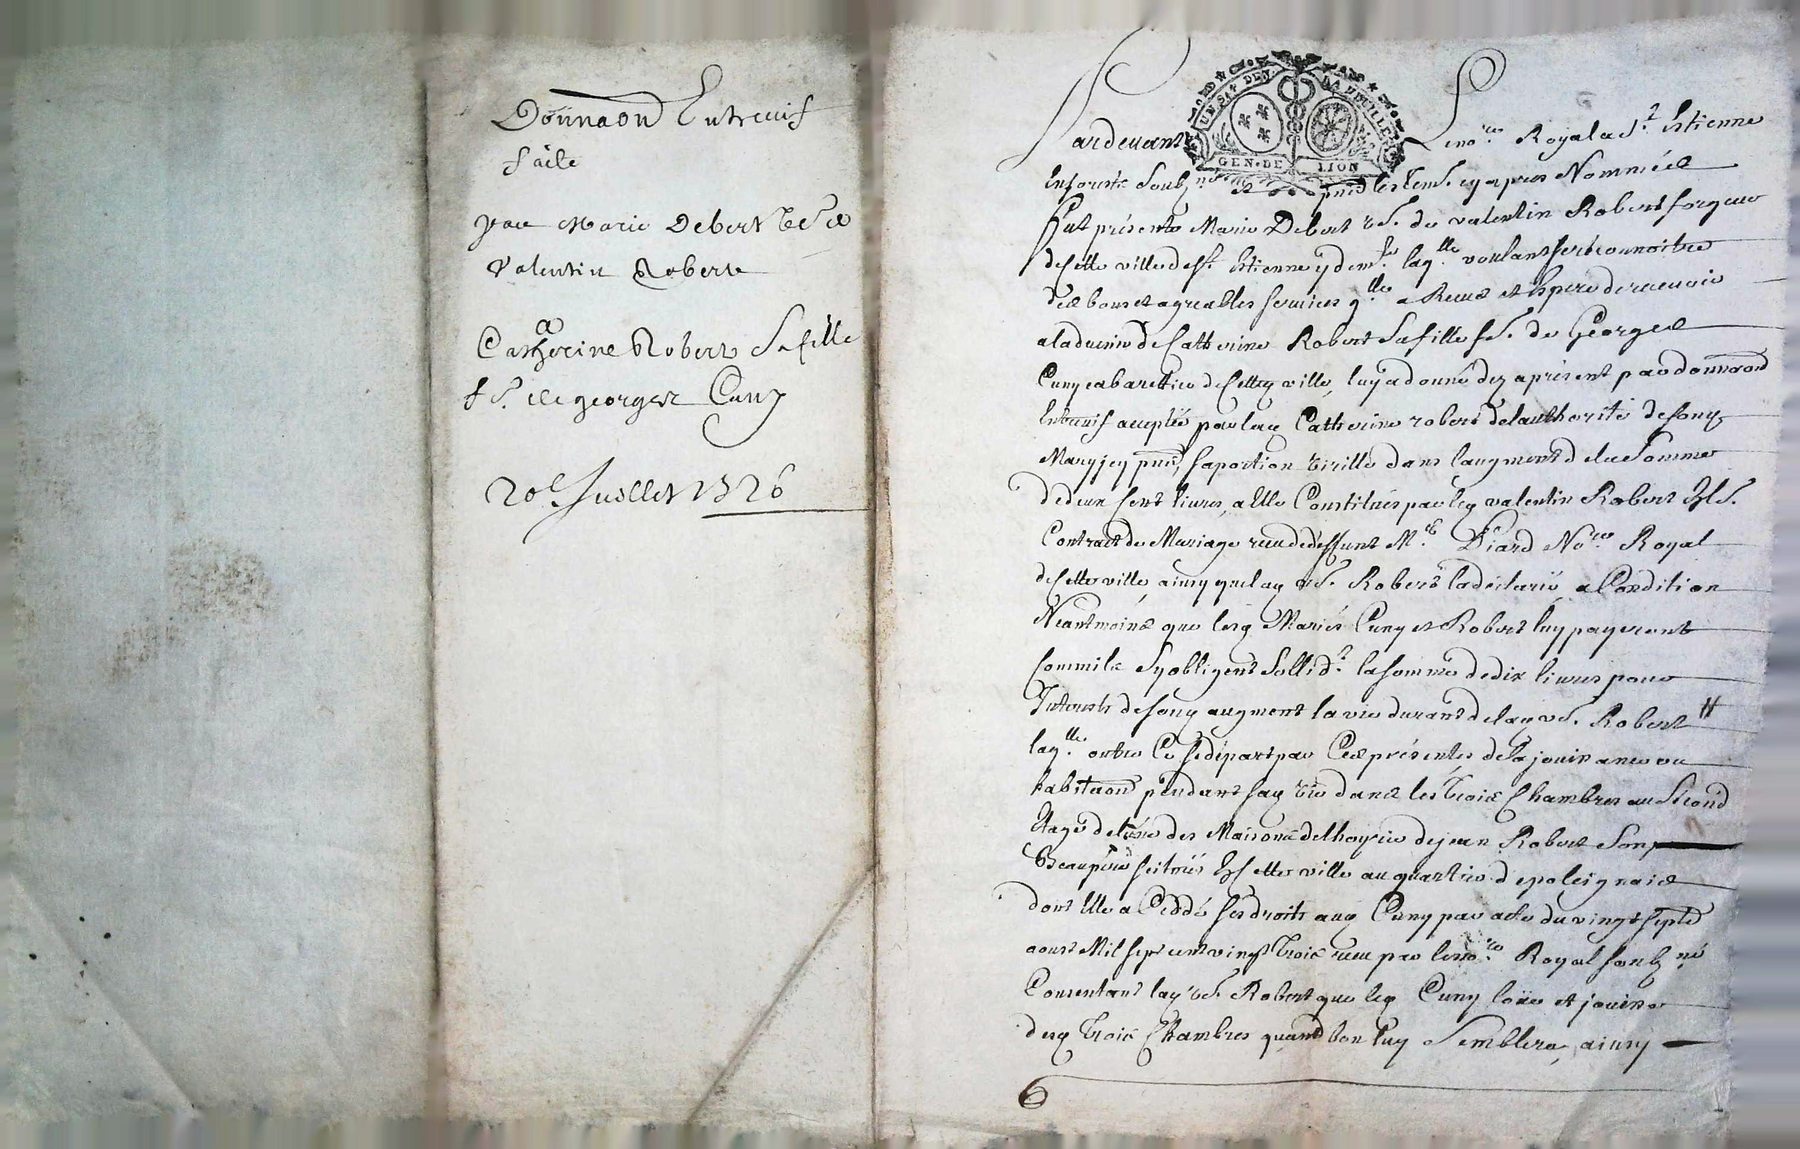 Donnaōn Entreuifs
faite
par Marie Debert Ve de
Valentin Robert
a
Catherine Robert Sa fille
fe. de george Cuny
20e. Juillet 1726
UN SOL DEN. LA FEUILLE
GEN. DE LION
Pardeuant Le nore. Royal a St. Estienne
En forests Soubzné pnts les Tems. cy apres Nommées
fut présente Marie Debert ve. de valentin Robert forgeur
de Cette ville de St. Estienne y demte. laqlle. voulant Recconnoitre
des bons et agreables seruices qlle. a Receus et Espere de receuoir
a laduenir de Catherine Robert Sa fille fe. de George
Cuny cabaretier de Cettes ville, luy a donné dez a présent par donnaōn
Entreuifs acceptée par lad Catherine robert de lauthorité de Son
Mary icy pnt, sa portion virille dans laugment de la Somme
de deux Cent liures, a Elle Constitués par leq valentin Robert
Contract de Mariage receu de deffunt Me. Diard Nore. Royal
de Cette ville, ainsy que laq ve. Robert la déclaré, a Condition
Néantmoins que lesq Mariés Cuny et Robert luy payeront
Comme ils Sy obligent Sollidt. la somme de dix liures pour
Interests de Son augment la vie durant de laq ve. Robert //
laqlle. outre Ce se départ par Ces présentes de la jouissance ou
habitaōn pendant sa vie dans les Trois Chambres au Second
Etage de lune des Maisons de lhoyrie de jean Robert Son
Beaupere scituée En Cette ville au quartier de poleignais
dont Elle a Ceddé ses droits auq Cuny par acte du vingt sept
aoust Mil sept cent vingt Trois receu par le nore. Royal Soubzné
Consentant laq ve. Robert que leq Cuny loüe et jouisse
desq Trois Chambres quand bon luy Semblera, ainsy